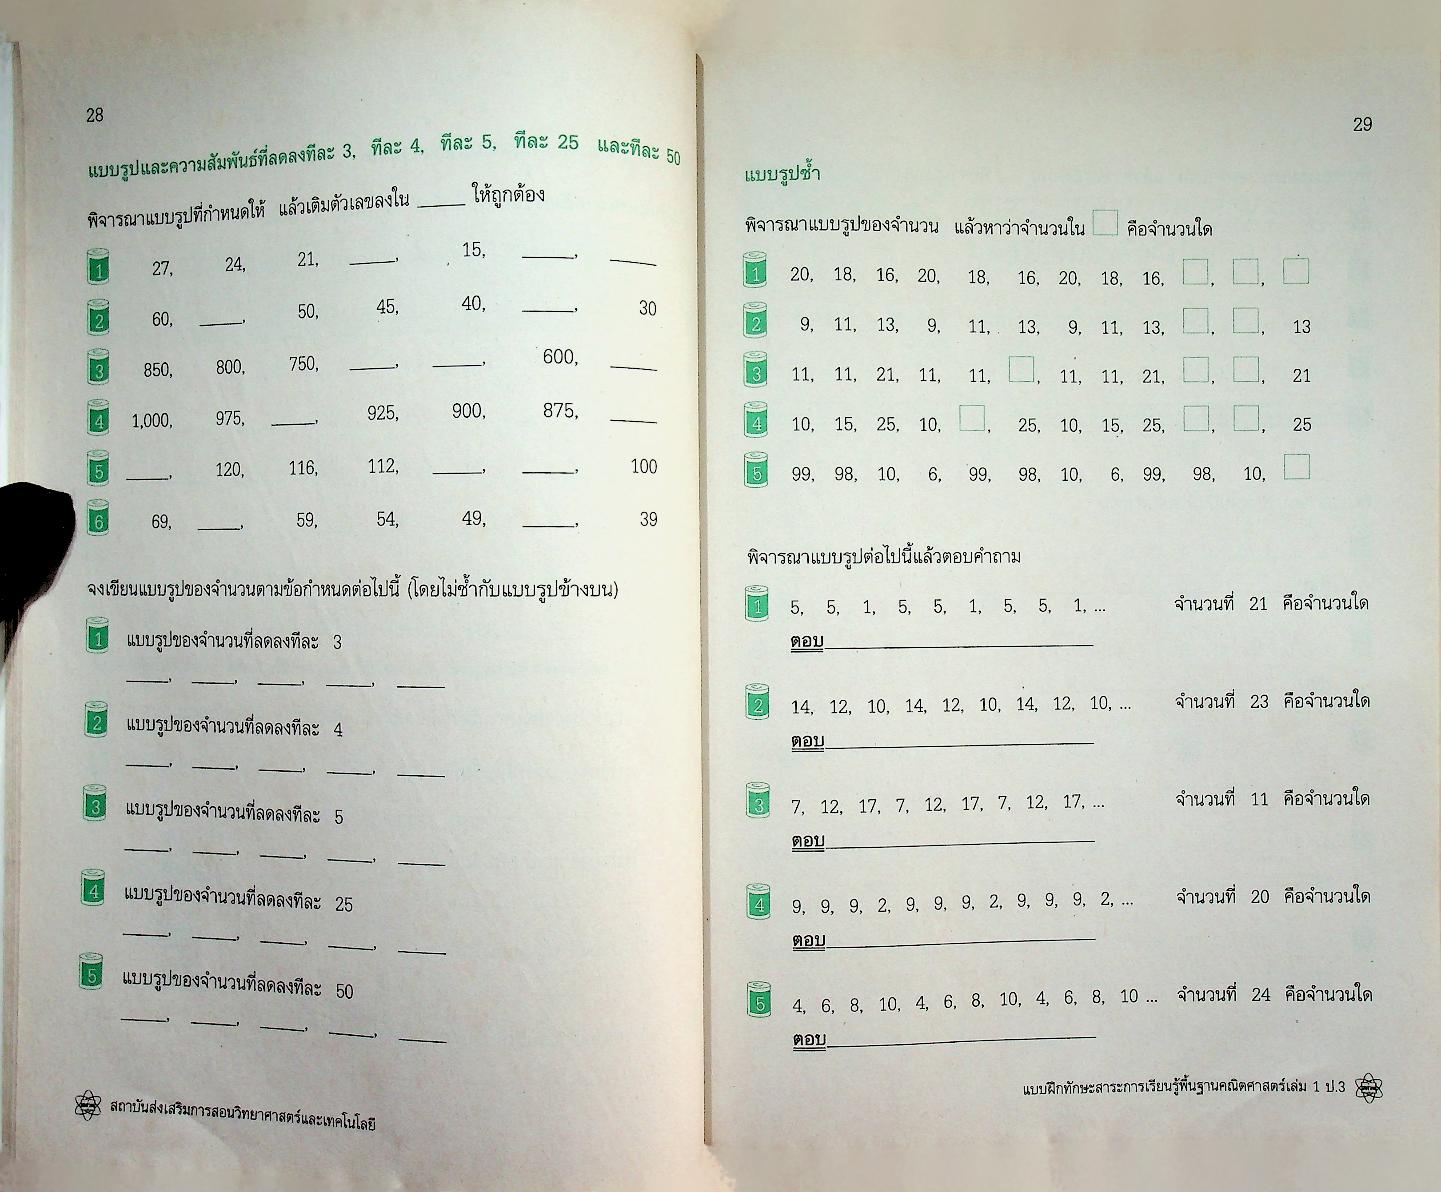 28
แบบรูปและความสัมพันธ์ที่ลดลงทีละ 3, ทีละ 4, ทีละ 5, ทีละ 25 และทีละ 50
พิจารณาแบบรูปที่กำหนดให้ แล้วเติมตัวเลขลงใน _____ ให้ถูกต้อง
1 27, 24, 21, _____, 15, _____, _____
2 60, _____, 50, 45, 40, _____, 30
3 850, 800, 750, _____, _____, 600, _____
4 1,000, 975, _____, 925, 900, 875, _____
5 _____, 120, 116, 112, _____, _____, 100
6 69, _____, 59, 54, 49, _____, 39
จงเขียนแบบรูปของจำนวนตามข้อกำหนดต่อไปนี้ (โดยไม่ซ้ำกับแบบรูปข้างบน)
1 แบบรูปของจำนวนที่ลดลงทีละ 3
_____, _____, _____, _____, _____
2 แบบรูปของจำนวนที่ลดลงทีละ 4
_____, _____, _____, _____, _____
3 แบบรูปของจำนวนที่ลดลงทีละ 5
_____, _____, _____, _____, _____
4 แบบรูปของจำนวนที่ลดลงทีละ 25
_____, _____, _____, _____, _____
5 แบบรูปของจำนวนที่ลดลงทีละ 50
_____, _____, _____, _____, _____
สถาบันส่งเสริมการสอนวิทยาศาสตร์และเทคโนโลยี
29
แบบรูปซ้ำ
พิจารณาแบบรูปของจำนวน แล้วหาว่าจำนวนใน □ คือจำนวนใด
1 20, 18, 16, 20, 18, 16, 20, 18, 16, □, □, □
2 9, 11, 13, 9, 11, 13, 9, 11, 13, □, □, 13
3 11, 11, 21, 11, 11, □, 11, 11, 21, □, □, 21
4 10, 15, 25, 10, □, 25, 10, 15, 25, □, □, 25
5 99, 98, 10, 6, 99, 98, 10, 6, 99, 98, 10, □
พิจารณาแบบรูปต่อไปนี้แล้วตอบคำถาม
1 5, 5, 1, 5, 5, 1, 5, 5, 1, ... จำนวนที่ 21 คือจำนวนใด
ตอบ_____
2 14, 12, 10, 14, 12, 10, 14, 12, 10, ... จำนวนที่ 23 คือจำนวนใด
ตอบ_____
3 7, 12, 17, 7, 12, 17, 7, 12, 17, ... จำนวนที่ 11 คือจำนวนใด
ตอบ_____
4 9, 9, 9, 2, 9, 9, 9, 2, 9, 9, 9, 2, ... จำนวนที่ 20 คือจำนวนใด
ตอบ_____
5 4, 6, 8, 10, 4, 6, 8, 10, 4, 6, 8, 10 ... จำนวนที่ 24 คือจำนวนใด
ตอบ_____
แบบฝึกทักษะสาระการเรียนรู้พื้นฐานคณิตศาสตร์เล่ม 1 ป.3